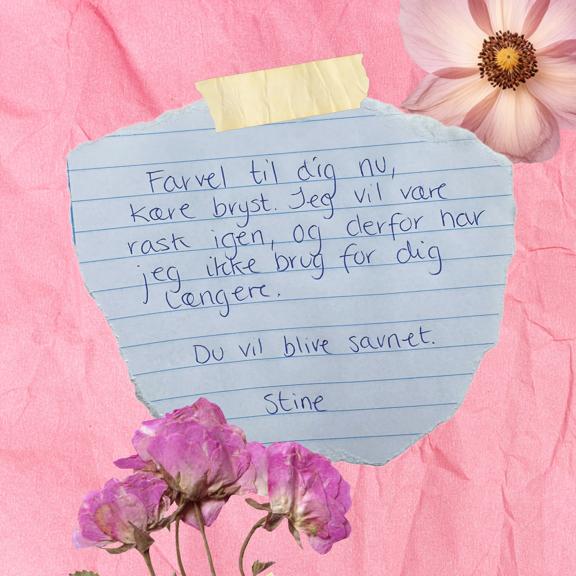 Farvel til dig nu,
kære bryst. Jeg vil være
rask igen, og derfor har
jeg ikke brug for dig
længere.
Du vil blive savnet.
Stine